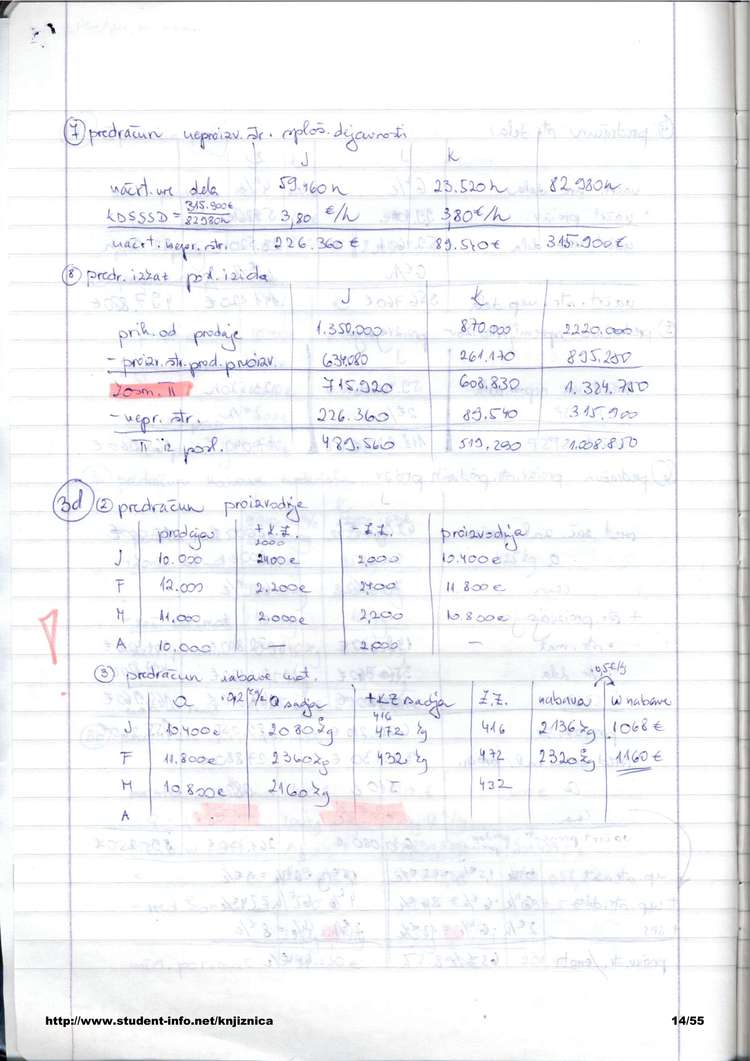 ⑦ predračun neproizv. str. sploš. dejavnosti
J K
načrt. ure dela 59.460h 23.520h 82.980h
KDSSSD = 315.900€/82980h 3,80 €/h 3,80€/h
načrt. nepr. str. 226.360 € 89.540€ 315.900€
⑧ predr. izkaz posl. izida
J K
prih. od prodaje 1.350.000 870.000 2220.000
- proizv. str. prod. proizv. 634.080 261.170 895.250
Kosm. π 715.920 608.830 1.324.750
- nepr. str. 226.360 89.540 315.900
π iz posl. 489.560 519.290 1.008.850
3d ② predračun proizvodnje
prodaja + K.Z. - Z.Z. proizvodnja
2000
J 10.000 2400e 2,000 10.400e
F 12.000 2.200e 2400 11 800e
M 11.000 2.000e 2,200 10.800e
A 10,000 — 2000 —
!
③ predračun nabave mat.
Q ·0,2 kg/e Q sadja +KZ sadja Z.Z. nabava 0,5€/kg W nabave
J 10.400e 2080kg 416 472 kg 416 2136kg 1068 €
F 11.800e 2360kg 432 kg 472 2320kg 1160€
M 10.800e 2160kg 432
A
http://www.student-info.net/knjiznica 14/55